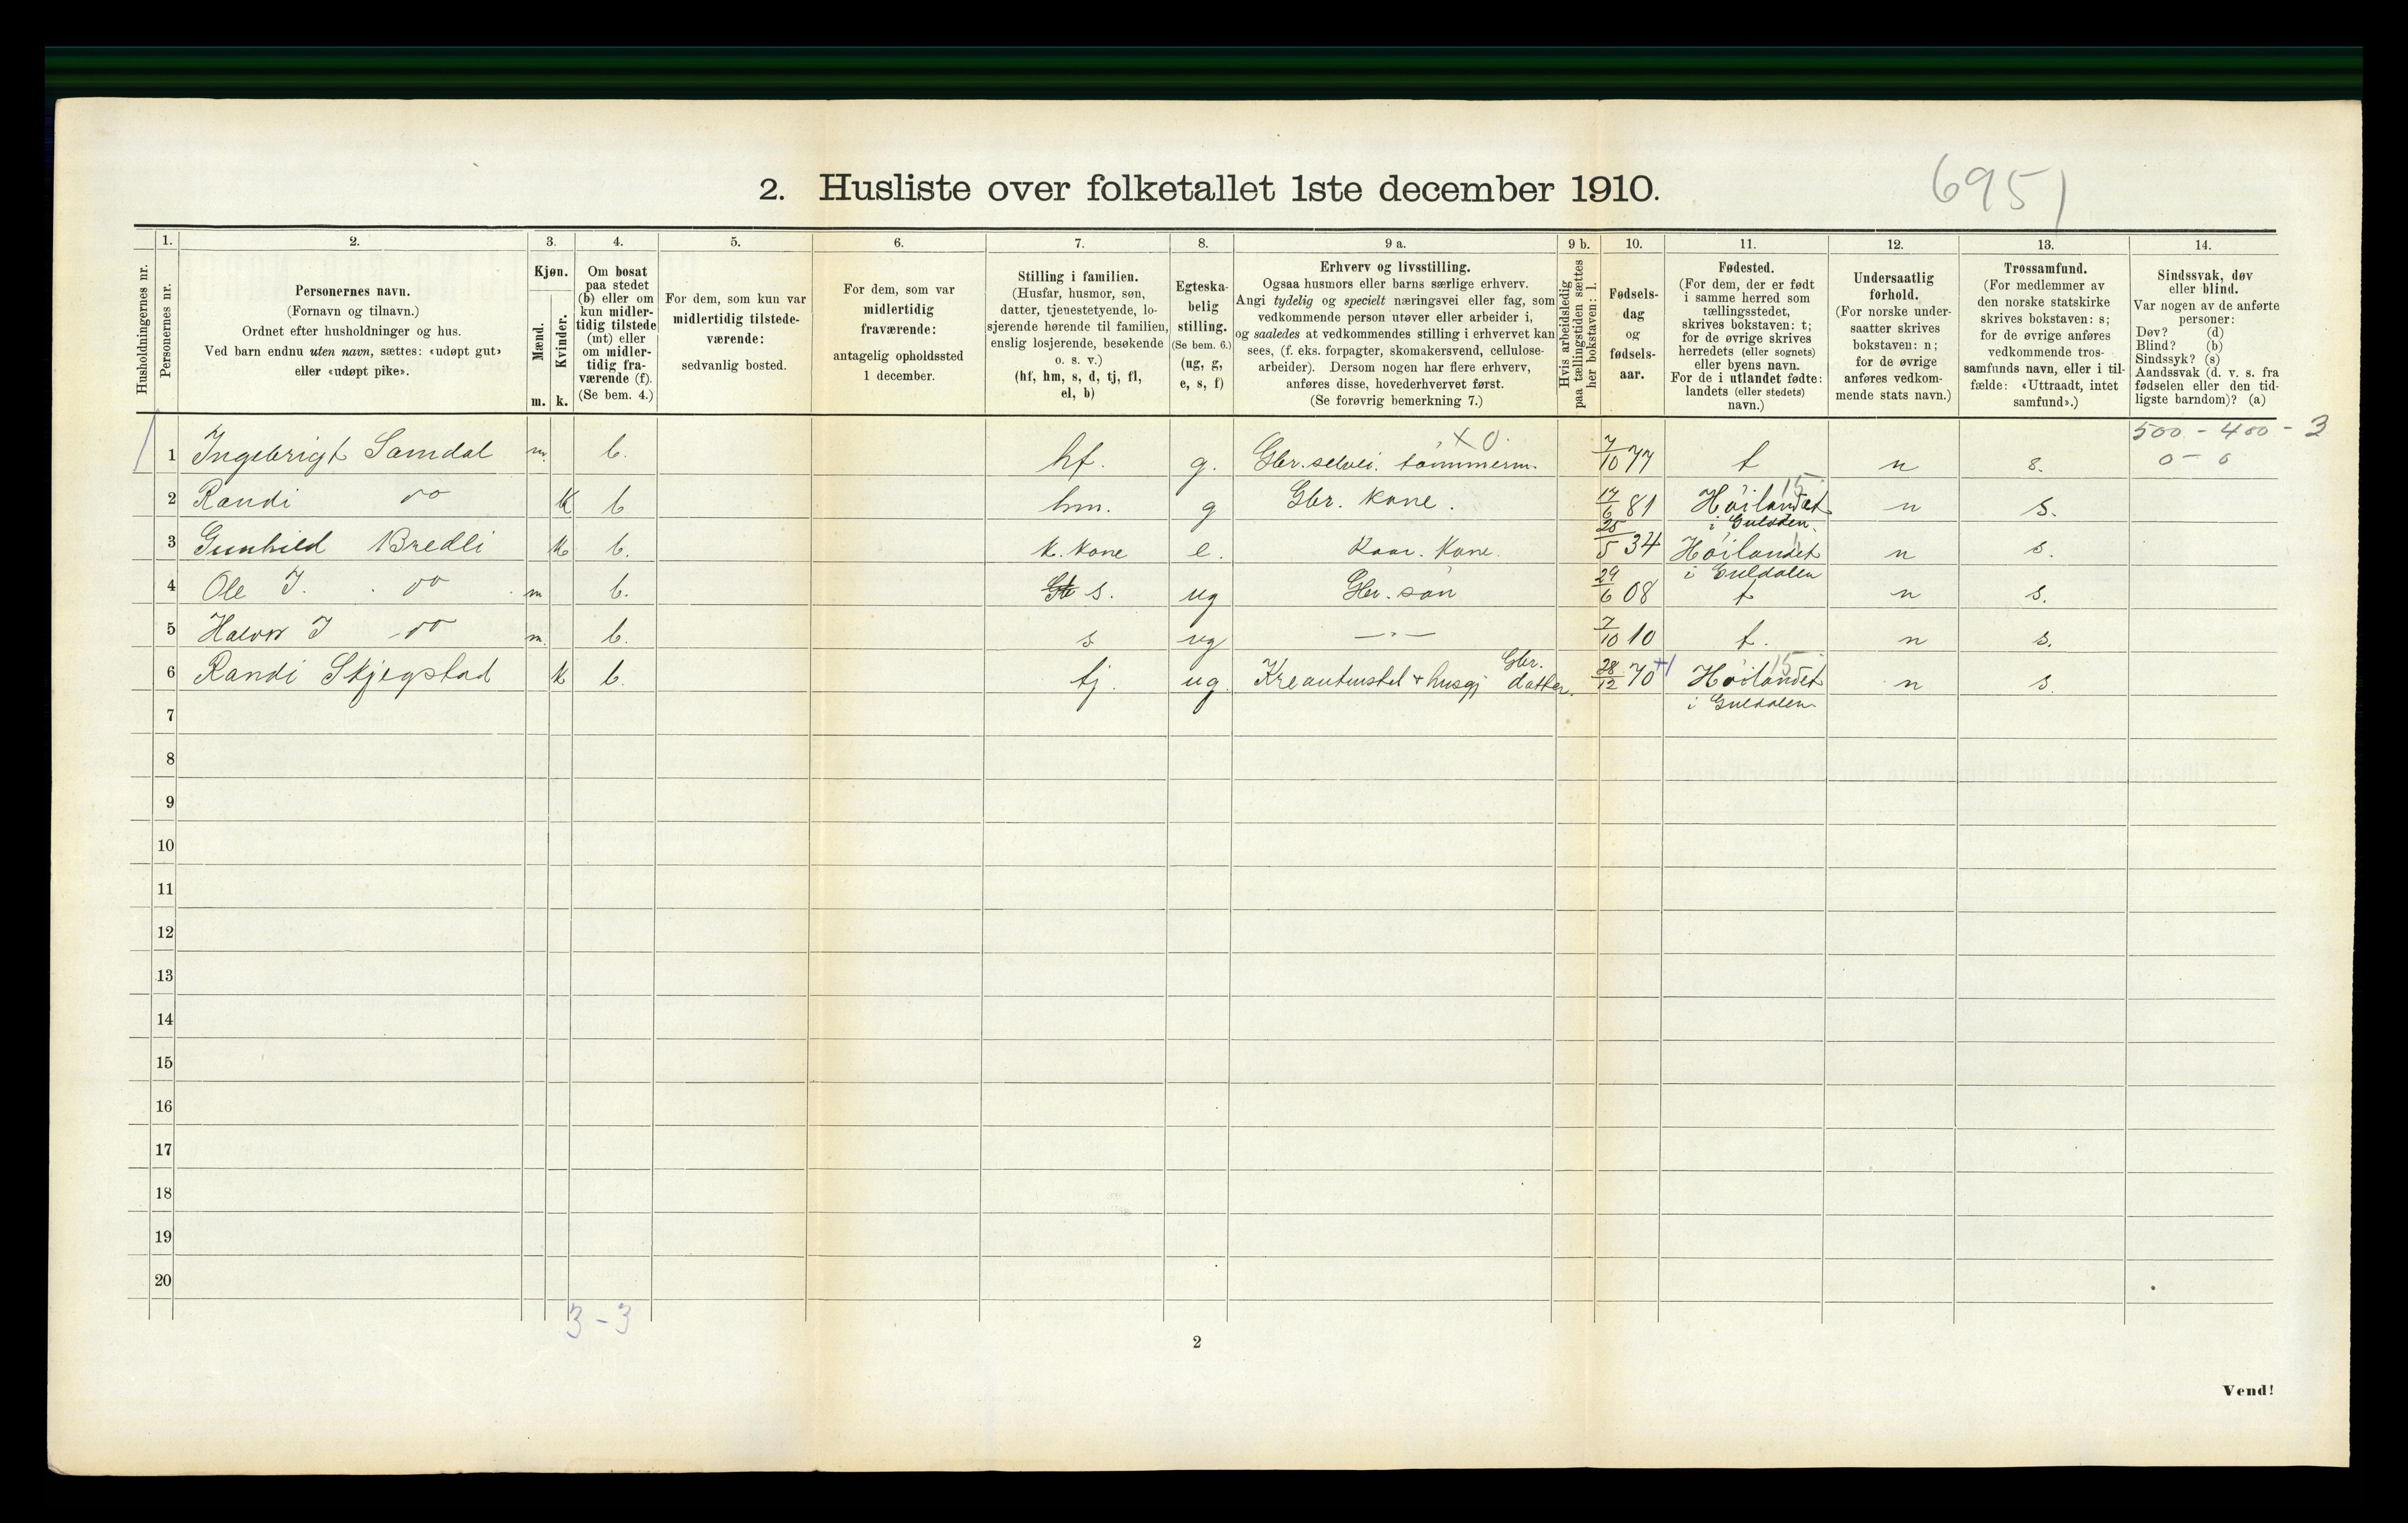 2. Husliste over folketallet 1ste december 1910.
6951
1. 2. 3. 4. 5. 6. 7. 8. 9 a. 9 b. 10. 11. 12. 13. 14.
Husholdningernes nr.
Personernes nr.
Personernes navn.
(Fornavn og tilnavn.)
Ordnet efter husholdninger og hus.
Ved barn endnu uten navn, sættes: «udøpt gut»
eller «udøpt pike».
Kjøn.
Mænd.
Kvinder.
m. k.
Om bosat
paa stedet
(b) eller om
kun midler-
tidig tilstede
(mt) eller
om midler-
tidig fra-
værende (f).
(Se bem. 4.)
For dem, som kun var
midlertidig tilstede-
værende:
sedvanlig bosted.
For dem, som var
midlertidig
fraværende:
antagelig opholdssted
1 december.
Stilling i familien.
(Husfar, husmor, søn,
datter, tjenestetyende, lo-
sjerende hørende til familien,
enslig losjerende, besøkende
o. s. v.)
(hf, hm, s, d, tj, fl,
el, b)
Egteska-
belig
stilling.
(Se bem. 6.)
(ug, g,
e, s, f)
Erhverv og livsstilling.
Ogsaa husmors eller barns særlige erhverv.
Angi tydelig og specielt næringsvei eller fag, som
vedkommende person utøver eller arbeider i,
og saaledes at vedkommendes stilling i erhvervet kan
sees, (f. eks. forpagter, skomakersvend, cellulose-
arbeider). Dersom nogen har flere erhverv,
anføres disse, hovederhvervet først.
(Se forøvrig bemerkning 7.)
Hvis arbeidsledig
paa tællingstiden sættes
her bokstaven: l.
Fødsels-
dag
og
fødsels-
aar.
Fødested.
(For dem, der er født
i samme herred som
tællingsstedet,
skrives bokstaven: t;
for de øvrige skrives
herredets (eller sognets)
eller byens navn.
For de i utlandet fødte:
landets (eller stedets)
navn.)
Undersaatlig
forhold.
(For norske under-
saatter skrives
bokstaven: n;
for de øvrige
anføres vedkom-
mende stats navn.)
Trossamfund.
(For medlemmer av
den norske statskirke
skrives bokstaven: s;
for de øvrige anføres
vedkommende tros-
samfunds navn, eller i til-
fælde: «Uttraadt, intet
samfund».)
Sindssvak, døv
eller blind.
Var nogen av de anførte
personer:
Døv? (d)
Blind? (b)
Sindssyk? (s)
Aandssvak (d. v. s. fra
fødselen eller den tid-
ligste barndom)? (a)
X 0. 500 - 400 - 3
1 Ingebrigt Samdal m. b. hf. g. Gbr. selvei. tømmerm. 7/10 77 t n s. 0 - 0
15
2 Randi do k b hm. g Gbr. kone. 17/6 81 Høilandet n s.
i Guldalen.
3 Gunhild Bredli k b. k. kone e. Kaar. kone. 25/5 34 Høilandet n s.
i Guldalen
4 Ole I. do m b. s. ug Gbr. søn 29/6 08 t n s.
5 Halvor I do m. b. s ug —"— 7/10 10 t. n s.
15
6 Randi Skjegstad k b. tj. ug. Kreaturstel + husgj Gbr. datter. 28/12 70 +1 Høilandet n s.
i Guldalen
7
8
9
10
11
12
13
14
15
16
17
18
19
20
3 - 3
2
Vend!